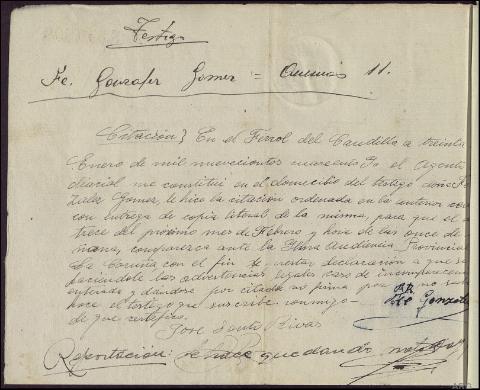 Testigo
Fe. Gonzalez Gomez = 11.
Citación} En el Ferrol del Caudillo a treinta
Enero de mil novecientos cuarenta Yo el Agente
dicial me constituí en el domicilio del testigo doña Fe
zalez Gomez, le hice la citación ordenada en la anterior
con entrega de copia literal de la misma, para que el
trece del proximo mes de Febrero y hora de las once de
mañana, comparezca ante la Iltma Audiencia Provincial
La Coruña con el fin de prestar declaración a que se
haciendole las advertencias legales caso de incomparecen
enterado y dándose por citado no firma por no sa
hace el testigo que suscribe conmigo
de que certifico.
José Rivas
Gonzalez
Reportación: Se hace quedando